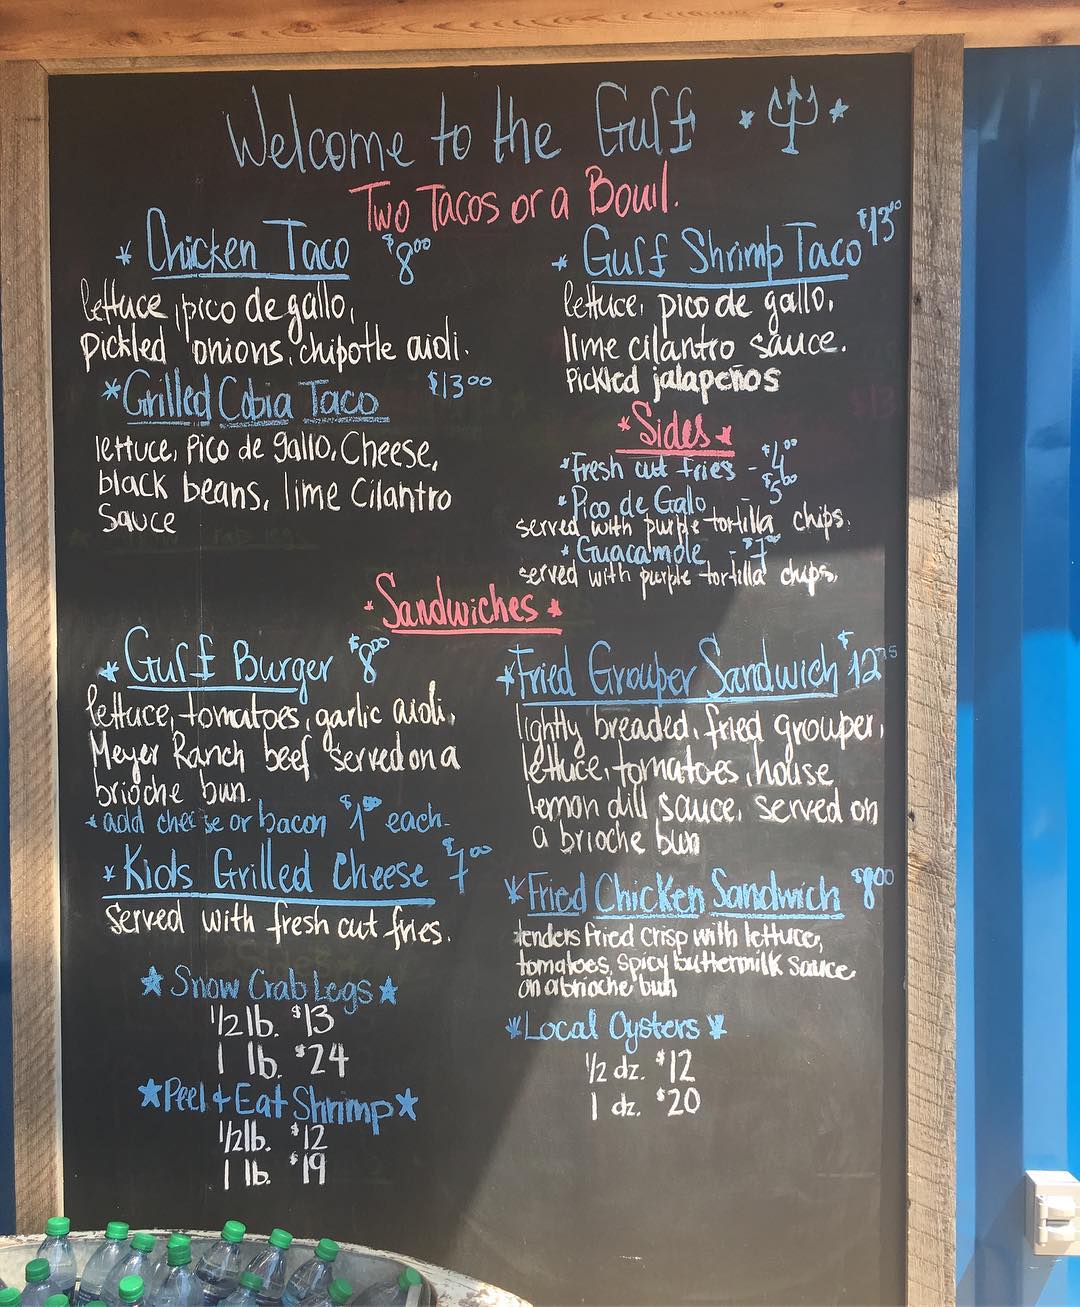 Welcome to the Gulf
Two Tacos or a Bowl.
* Chicken Taco $8.00
lettuce, pico de gallo,
pickled onions, chipotle aioli.
*Grilled Cobia Taco $13.00
lettuce, Pico de gallo, Cheese,
black beans, lime Cilantro
Sauce
* Gulf Shrimp Taco $13.00
lettuce, pico de gallo,
lime cilantro sauce.
Pickled jalapeños
*Sides*
*Fresh cut fries - $4.00
*Pico de Galo - $5.00
served with purple tortilla chips.
* Guacamole - $7.00
served with purple tortilla chips.
*Sandwiches*
* Gulf Burger $8.00
lettuce, tomatoes, garlic aioli,
Meyer Ranch beef served on a
brioche bun.
* add cheese or bacon $1.00 each.
* Kids Grilled Cheese $7.00
Served with fresh cut fries.
*Fried Grouper Sandwich $12.75
lightly breaded, fried grouper,
lettuce, tomatoes, house
lemon dill sauce, served on
a brioche bun
*Fried Chicken Sandwich $8.00
tenders fried crisp with lettuce,
tomatoes, spicy buttermilk sauce
on a brioche bun
* Snow Crab Legs *
1/2 lb. $13
1 lb. $24
*Peel & Eat Shrimp*
1/2 lb. $12
1 lb. $19
*Local Oysters*
1/2 dz. $12
1 dz. $20